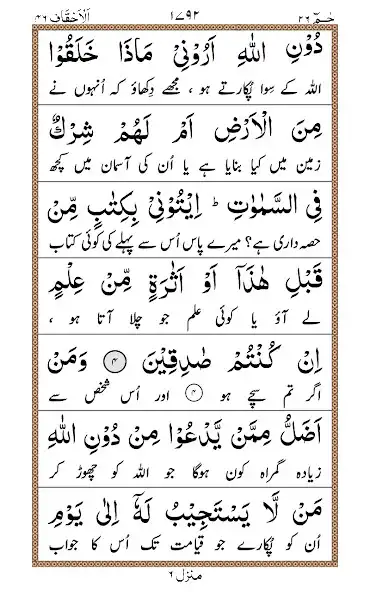 حٰمٓ ٢٦ ١٧٩٢ اَلْاَحْقَاف ٤٦
دُوْنِ اللّٰهِ اَرُوْنِیْ مَاذَا خَلَقُوْا
اللہ کے سوا پُکارتے ہو ، مجھے دِکھاؤ کہ اُنہوں نے
مِنَ الْاَرْضِ اَمْ لَهُمْ شِرْكٌ
زمین میں کیا بنایا ہے یا اُن کی آسمان میں کچھ
فِی السَّمٰوٰتِ ؕ اِیْتُوْنِیْ بِكِتٰبٍ مِّنْ
حصہ داری ہے؟ میرے پاس اُس سے پہلے کی کوئی کتاب
قَبْلِ هٰذَاۤ اَوْ اَثٰرَةٍ مِّنْ عِلْمٍ
لے آؤ یا کوئی علم جو چلا آتا ہو ،
اِنْ كُنْتُمْ صٰدِقِیْنَ ﴿۴﴾ وَمَنْ
اگر تم سچے ہو ﴿۴﴾ اور اُس شخص سے
اَضَلُّ مِمَّنْ یَّدْعُوْا مِنْ دُوْنِ اللّٰهِ
زیادہ گمراہ کون ہوگا جو اللہ کو چھوڑ کر
مَنْ لَّا یَسْتَجِیْبُ لَهٗۤ اِلٰی یَوْمِ
اُن کو پُکارے جو قیامت تک اُس کا جواب
منزل ٦